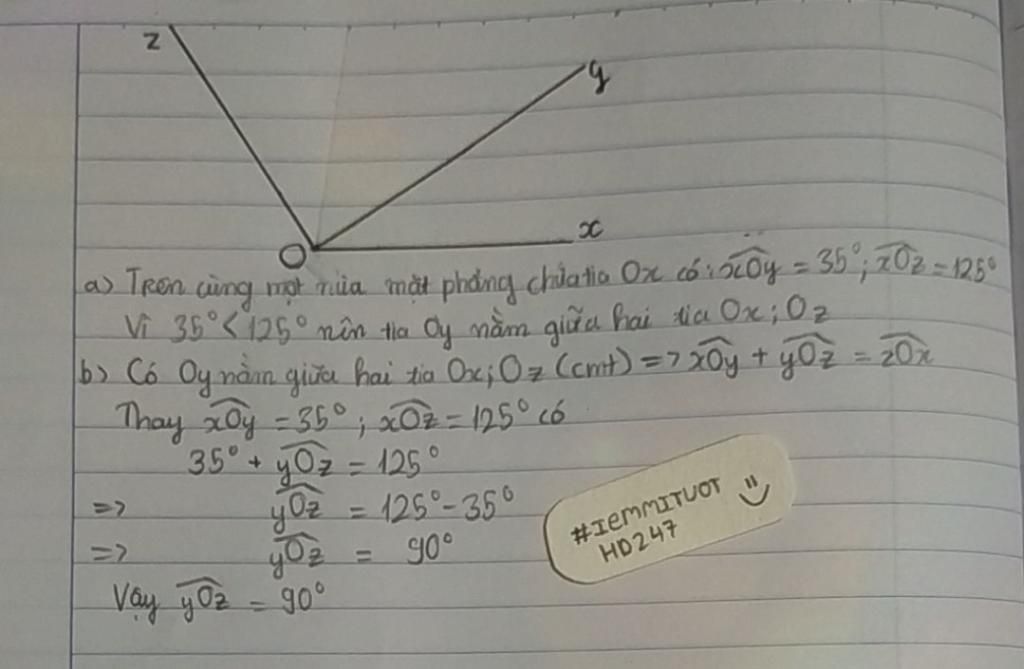 z
y
x
O
a) Trên cùng một nửa mặt phẳng chứa tia Ox có: xOy = 35°; xOz = 125°
Vì 35° < 125° nên tia Oy nằm giữa hai tia Ox; Oz
b) Có Oy nằm giữa hai tia Ox; Oz (cmt) => xOy + yOz = zOx
Thay xOy = 35°; xOz = 125° có
35° + yOz = 125°
=> yOz = 125° - 35°
=> yOz = 90°
Vậy yOz = 90°
#IEMMITUOT
HD247